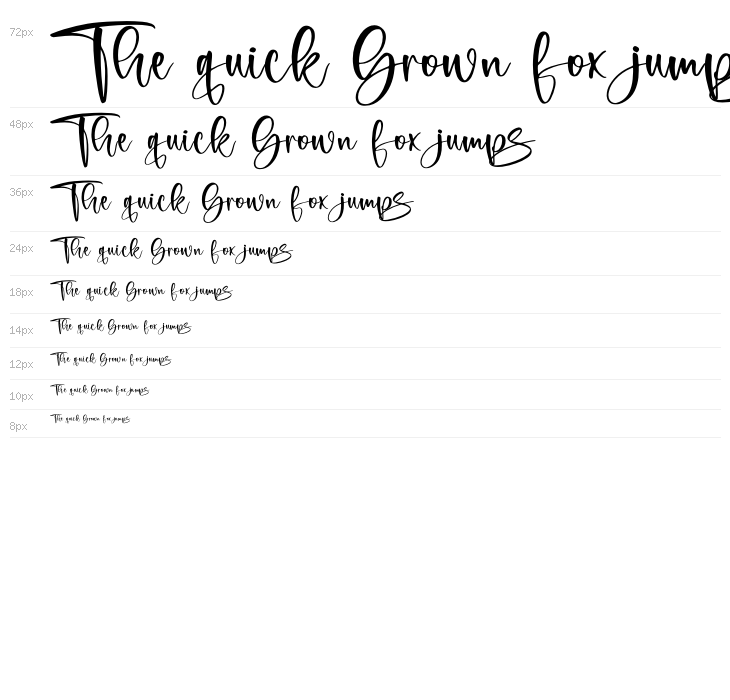 72px The quick Grown fox jump
48px The quick Grown fox jumps
36px The quick Grown fox jumps
24px The quick Grown fox jumps
18px The quick Grown fox jumps
14px The quick Grown fox jumps
12px The quick Grown fox jumps
10px The quick Grown fox jumps
8px The quick Grown fox jumps